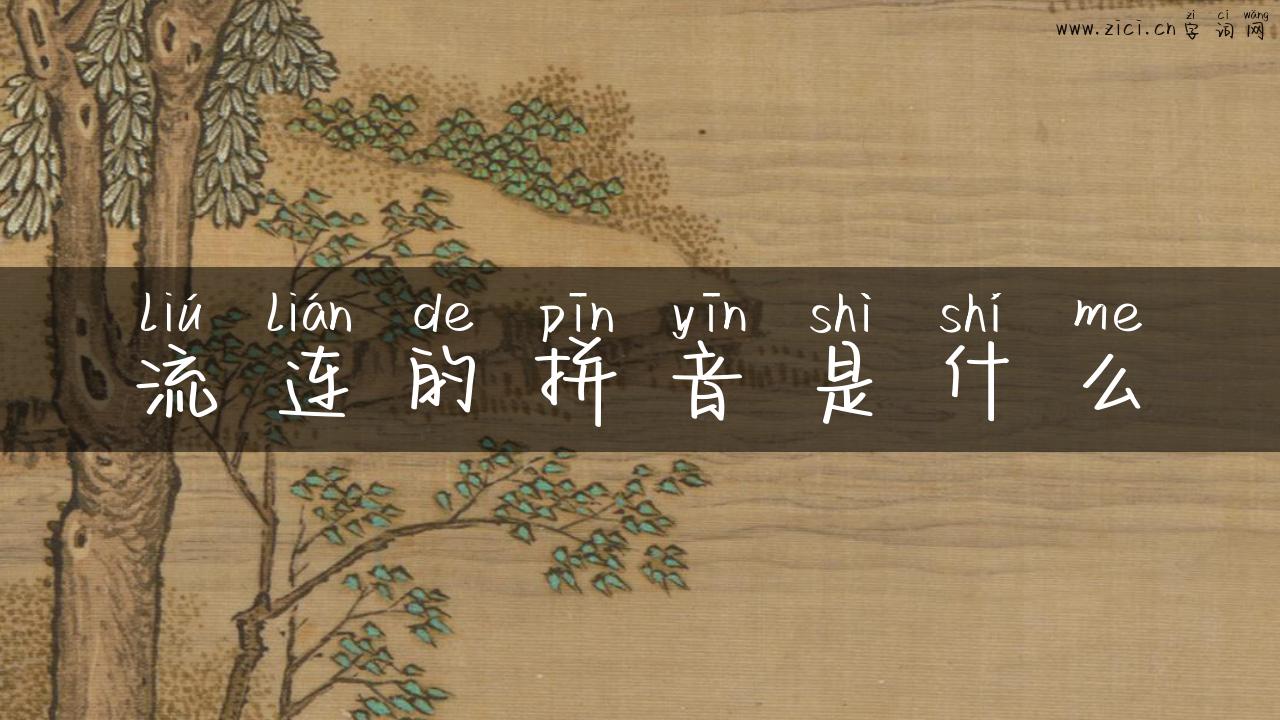 zì cí wǎng
www.zici.cn 字词网
liú lián de pīn yīn shì shí me
流连的拼音是什么